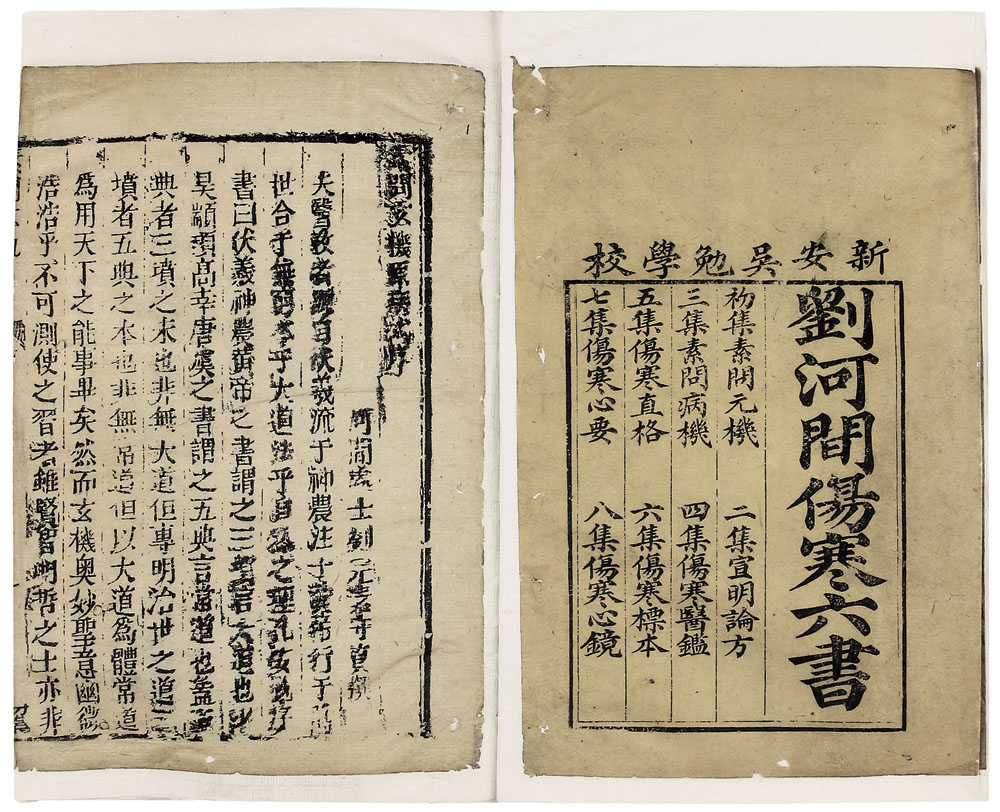 新安吳勉學校
劉河間傷寒六書
初集素問元機 二集宣明論方
三集素問病機 四集傷寒醫鑑
五集傷寒直格 六集傷寒標本
七集傷寒心要 八集傷寒心鏡
素問玄機原病式序
河間處士劉完素守真撰
夫醫教者源自伏羲流于神農注于黃帝行于萬
世合于無窮本乎大道法乎自然之理孔安國序
書曰伏羲神農黃帝之書謂之三墳言大道也少
昊顓頊高辛唐虞之書謂之五典言常道也蓋五
典者三墳之末也非無大道但專明治世之道三
墳者五典之本也非無常道但以大道爲體常道
爲用天下之能事畢矣然而玄機奧妙聖意幽微
浩浩乎不可測使之習者雖賢智明哲之士亦非